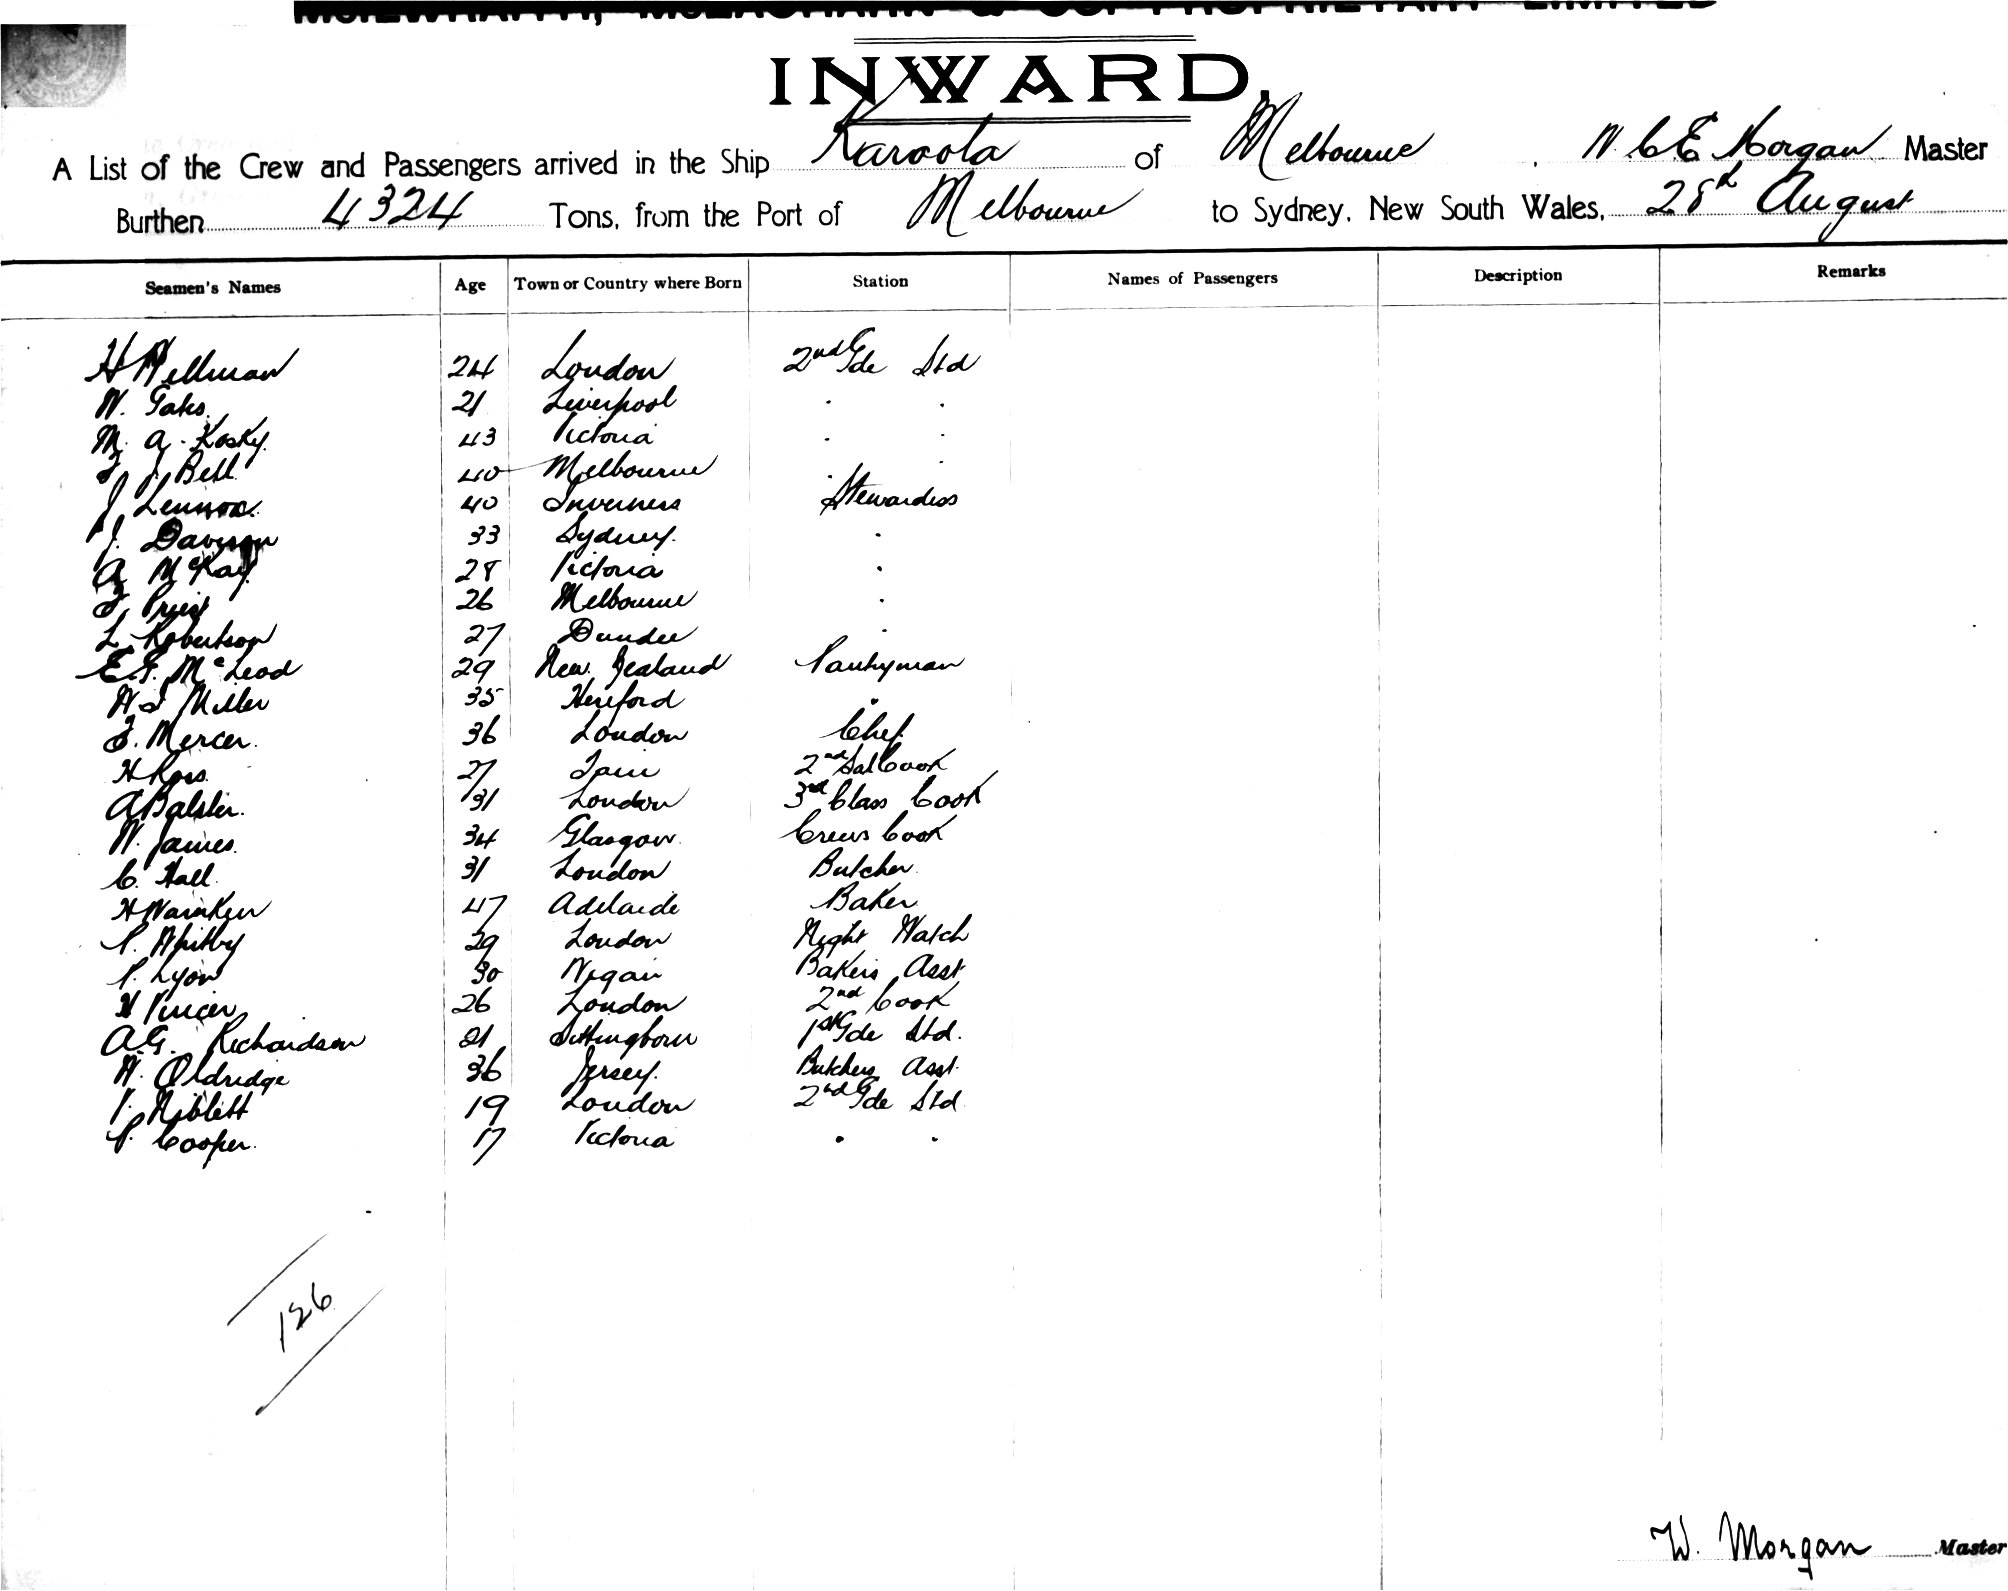 McILWRAITH, McEACHARN & CO. PROPRIETARY LIMITED
INWARD,
A List of the Crew and Passengers arrived in the Ship Karoola of Melbourne, W C E Morgan Master
Burthen 4324 Tons, from the Port of Melbourne to Sydney, New South Wales, 28th August
Seamen's Names Age Town or Country where Born Station Names of Passengers Description Remarks
H Wellman 24 London 2nd Gde Std
W. 21 Liverpool " "
M. A. Kosky 43 Victoria " "
J. Bell 40 Melbourne " "
J Lennox. 40 Inverness Stewardess
J. Davison 33 Sydney. "
A McKay 28 Victoria "
Priest 26 Melbourne "
L. Robertson 27 Dundee "
E.F. McLeod 29 New Zealand Pantryman
Miller 35 Hereford "
F. Mercer. 36 London Chef
H Ross. 27 Tain 2nd Sal Cook
A Balster. 31 London 3rd Class Cook
W. James. 34 Glasgow. Crews Cook
C. Hall. 31 London Butcher
H Warnken 47 Adelaide Baker
P. Whitby 29 London Night Watch
P. Lyon 30 Wigan Bakers Asst
H Vincer 26 London 2nd Cook
A.G. Richardson 21 Sittingborn 1st Gde Std.
W. Oldridge 36 Jersey. Butchers Asst.
V. Niblett 19 London 2nd Gde Std.
P. Cooper. 17 Victoria " "
126
W. Morgan Master